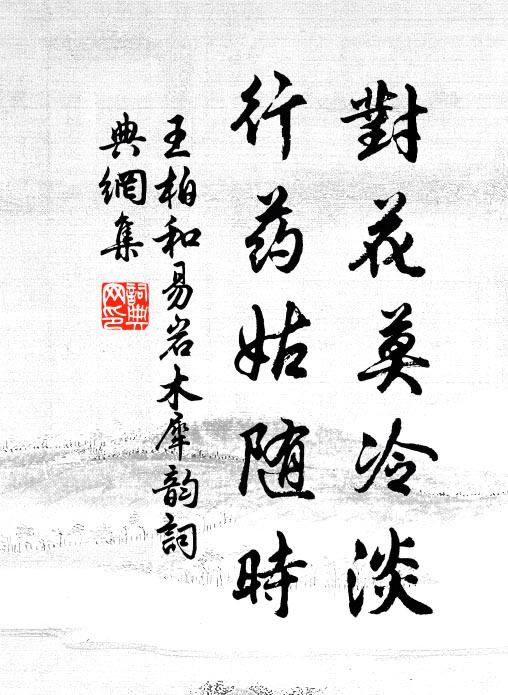 對花莫冷淡
行药姑随時
王柏和易岩木犀韵詞
典網集
詞典
网印